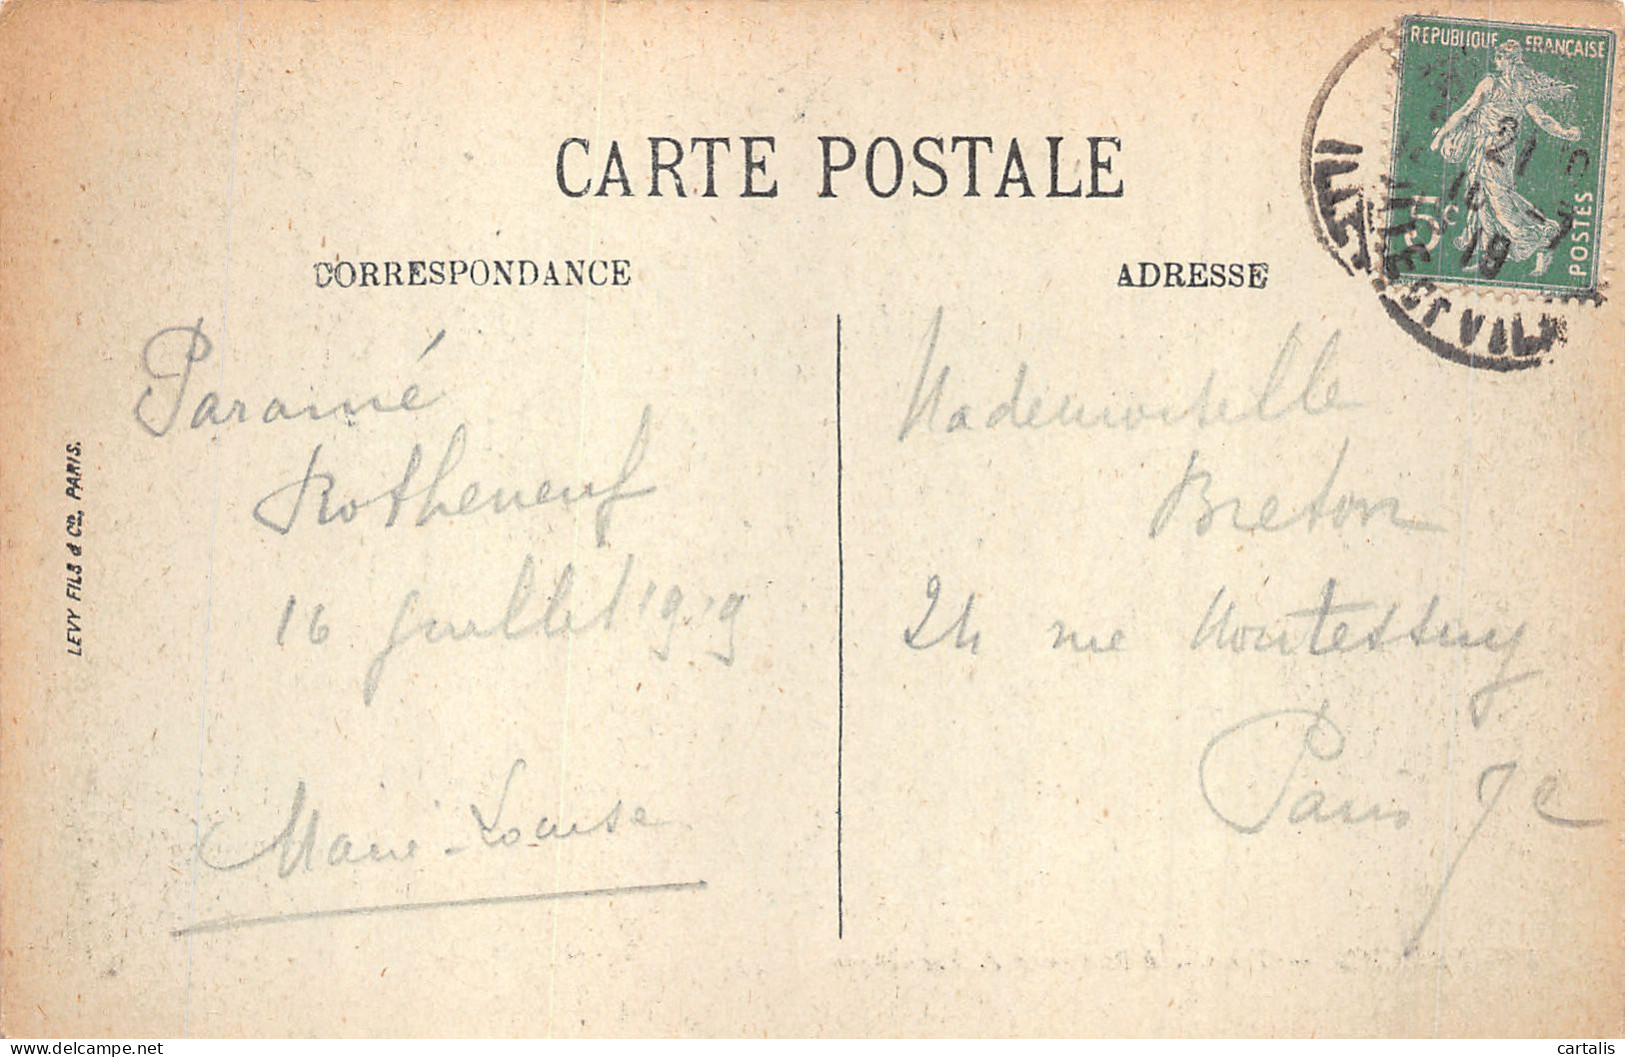 CARTE POSTALE
CORRESPONDANCE
ADRESSE
REPUBLIQUE FRANÇAISE
5c
POSTES
21
16 -7
19
ILLE
ET VIL
LEVY FILS & Co, PARIS.
Paramé
Rotheneuf
16 Juillet 1919
Marie-Louise
Mademoiselle
Breton
24 rue Montessuy
Paris 7e
delcampe.net
cartalis